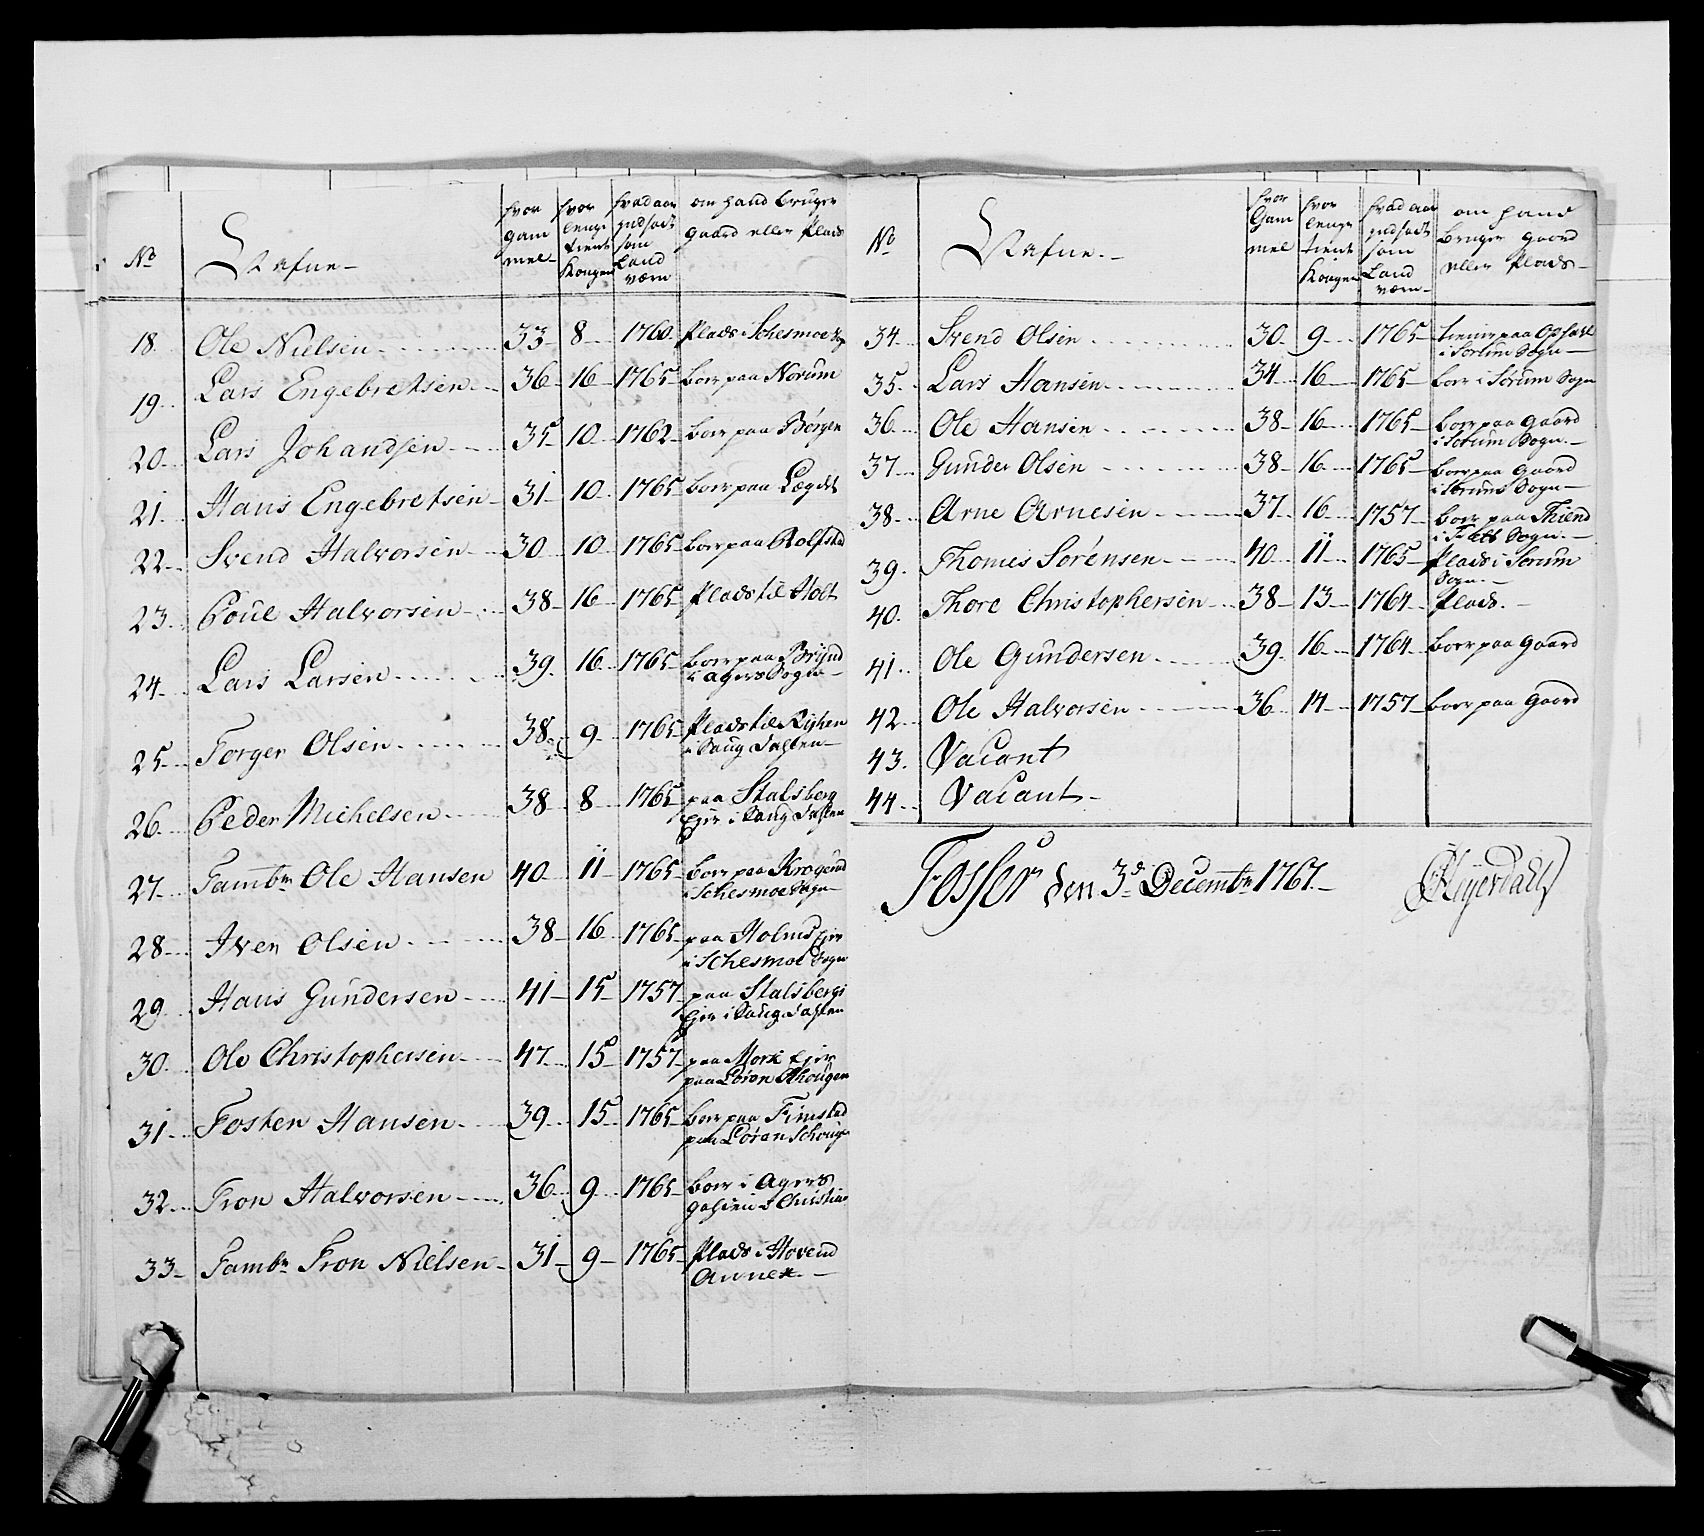 No
Nafne
hvor gam mel
hvor lenge tient Kongen
hvad aar indsadt som Land værn
om hand bruger gaard eller Plads
18. Ole Nielsen 33 8 1760 Plads i Schesmoe Sogn
19. Lars Engebretsen 36 16 1765 boer paa Norum
20. Lars Johandsen 35 10 1762 boer paa Børgen
21. Hans Engebretsen 31 10 1765 boer paa
22. Svend Halvorsen 30 10 1765 boer paa Rolfstad
23. Poul Halvorsen 38 16 1765 Plads til Holt
24. Lars Larsen 39 16 1765 boer paa Brÿnd
i Agers Sogn
25. Torger Olsen 38 9 1765 Plads til
i
26. Peder Michelsen 38 8 1765 paa Stalsberg
Ejer i
27. Tambr Ole Hansen 40 11 1765 boer paa
i Schesmoe Sogn
28. Iver Olsen 38 16 1765 paa Holms Ejer
i Schesmoe Sogn
29. Hans Gundersen 41 15 1757 paa Stalsbergs
Ejer i
30. Ole Christophersen 47 15 1757 paa Mork Ejer
paa Løren Schougen
31. Tosten Hansen 39 15 1765 boer paa Fimstad
paa Løren Schoug
32. Tron Halvorsen 36 9 1765 boer i Agers
33. Tambr Tron Nielsen 31 9 1765 Plads i Hovend
Annex
No
Nafne
hvor Gam mel
hvor lenge tient Kongen
hvad aar indsadt som Land værn
om hand bruger gaard eller Plads
34. Svend Olsen 30 9 1765 tiener paa
i Sørum Sogn
35. Lars Hansen 34 16 1765 boer i Sørum Sogn
36. Ole Hansen 38 16 1765 boer paa gaard
i Sørum Sogn
37. Gunder Olsen 38 16 1765 boer paa gaard
i Sørums Sogn
38. Arne Arnesen 37 16 1757 boer paa Thiend
i Fets Sogn
39. Thomes Sørensen 40 11 1765 Plads i Sørum
Sogn
40. Thore Christophersen 38 13 1764 Plads
41. Ole Gundersen 39 16 1764 boer paa gaard
42. Ole Halvorsen 36 14 1757 boer paa Gaard
43. Vacant
44. Vacant
Fosser den 3d Decembr 1767.
Heyerdahl